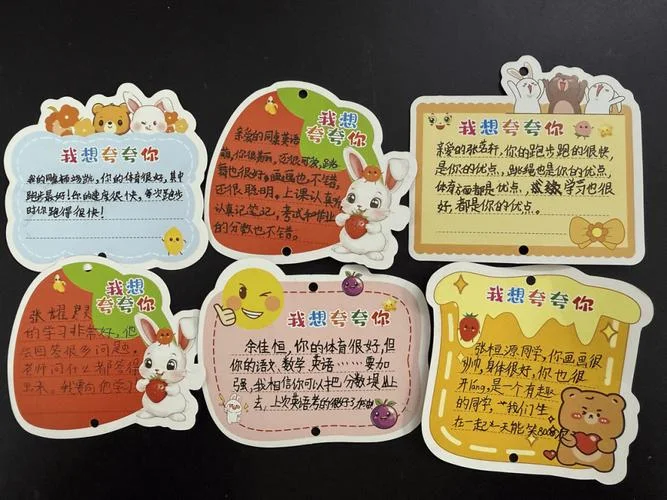 我想夸夸你
我的同桌杨鸿凯,你的体育很好,其中
跑步最好!你的速度很快。每次跑步
时你跑得很快!
我想
夸夸你
亲爱的同桌英语
萌,你很美丽,还很可爱,跳
舞也很好。画画也不错,
还很聪明。上课认真听
认真记笔记,考试和作业
的分数也不错。
我想夸夸你
亲爱的张若轩,你的跑步跑的很快,
是你的优点,跳绳也是你的优点,
体育方面都是优点,学习也很
好,都是你的优点。
我想
夸夸你
张耀
的学习非常好,他
会回答很多问题,
老师问什么都答得
出来。我要向他学习
我想夸夸你
余佳恒,你的体育很好,但
你的语文、数学、英语……要加
强,我相信你可以把分数提上
去,上次英语考的很好了加油
我想夸夸你
张恒源同学,你画画很
帅,身体很好,你也很
开lǎng,是一个有趣
的同学,我们生
在一起